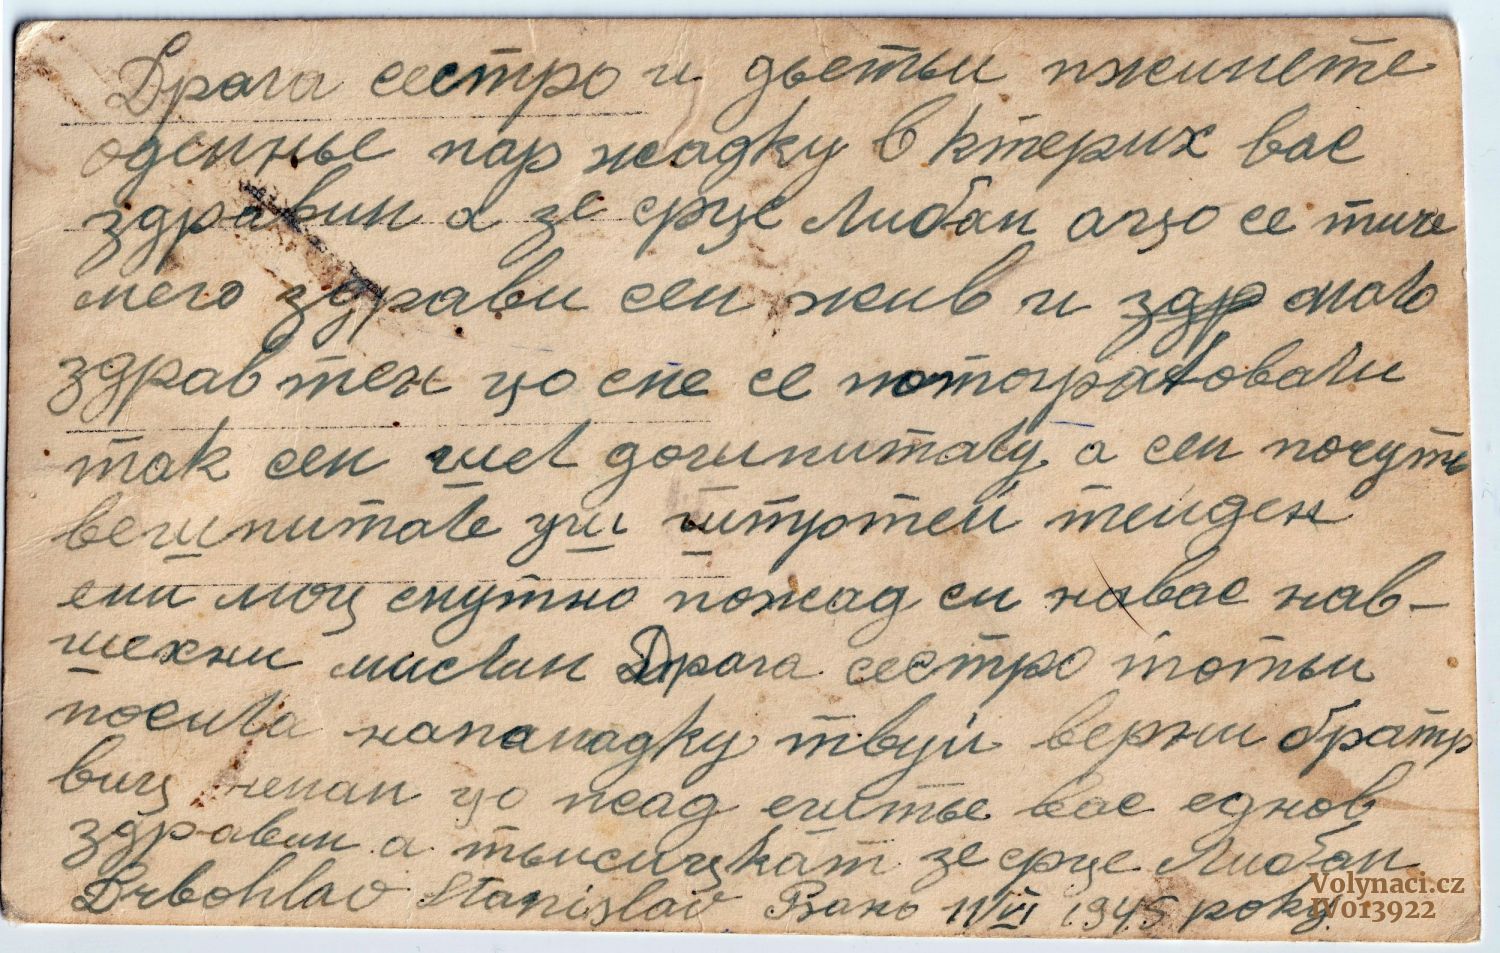 Драга сестро и дьетьи пжинете
оденнье пар жадку в ктерих вас
здравин а зе срце Либан ачцо се тиче
мего здрави сен жив и здр мало
здрав тен цо сне се потограбовали
так сен шел догшпиталу а сен почуть
вешпитале уш штуртей тейден
ений моц снутно пожад сн навас нав-
шехни мислин Драга сестро тотьи
посила напамадку твуй верни братр
виц непан цо псад ештье вас еднов
здравин а тьисицкат зе срце Либан
Drbohlav Stanislav Вано 11 VI 1945 року.
Volynaci.cz
IV013922